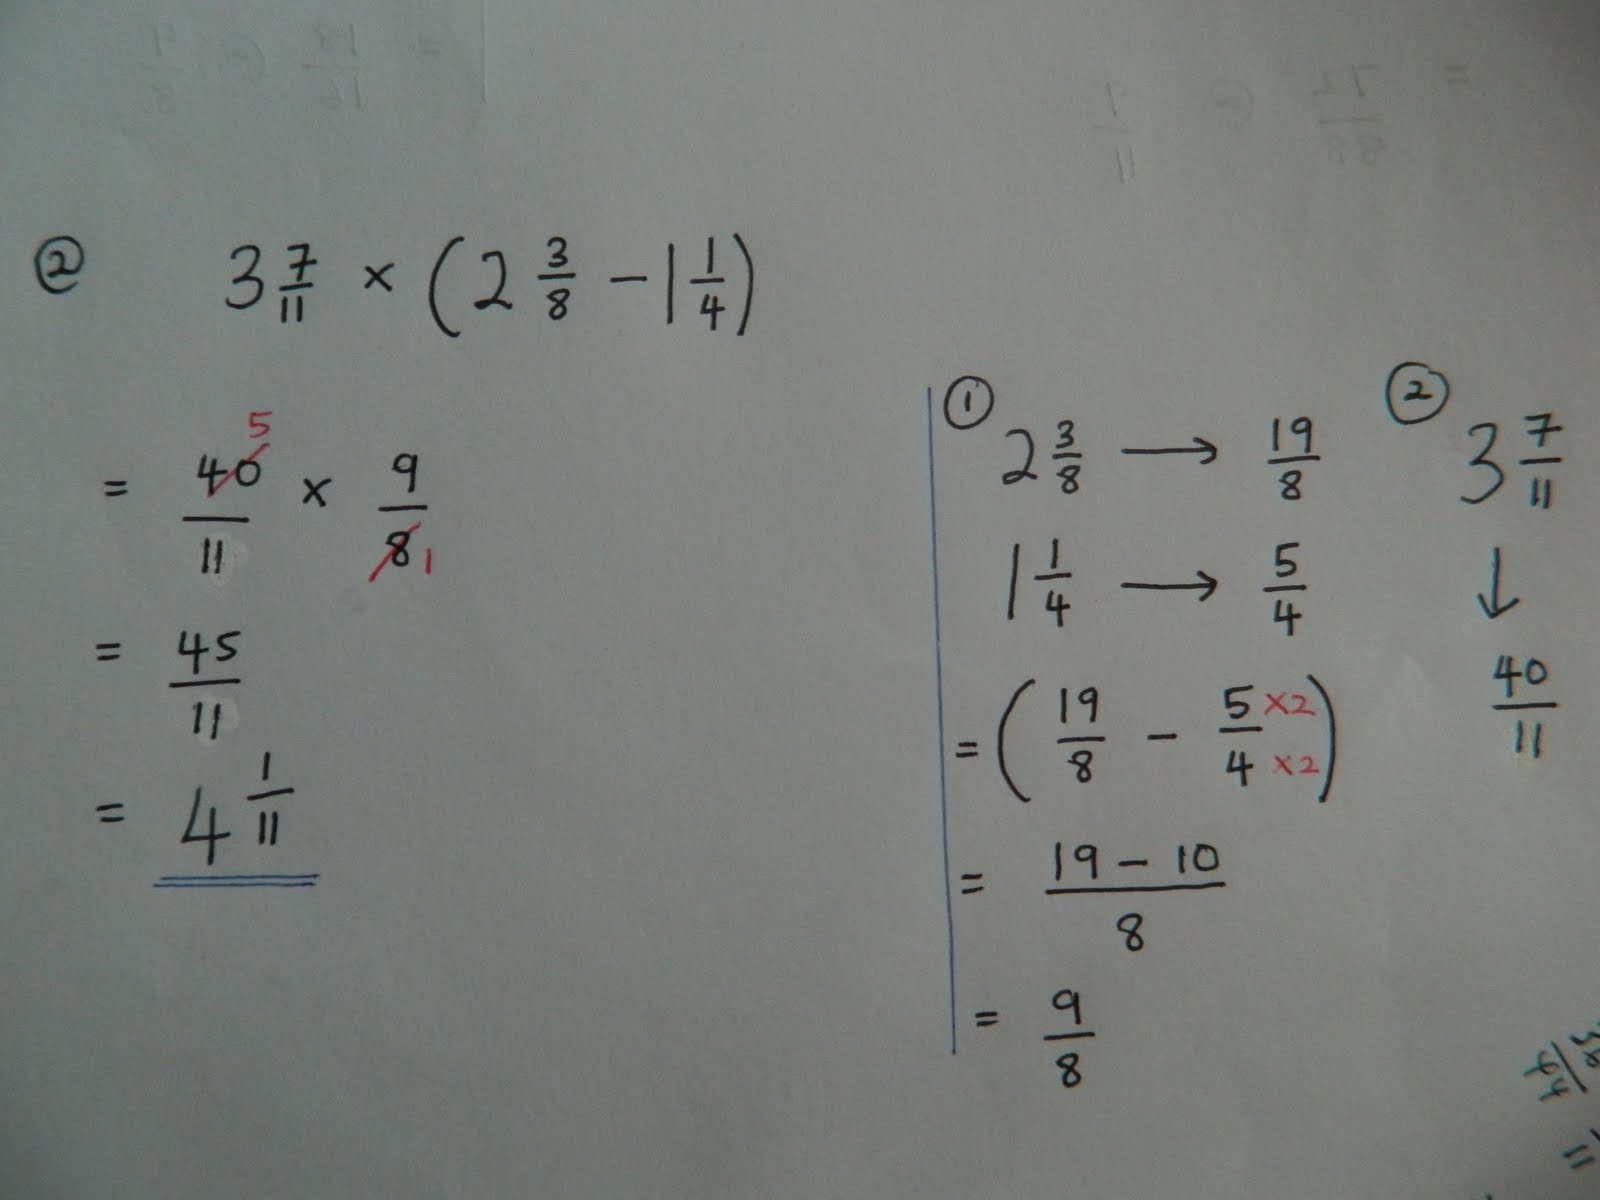 ② 3 7/11 × (2 3/8 − 1 1/4)
= 40/11 × 9/8 5 1
= 45/11
= 4 1/11
① 2 3/8 → 19/8
1 1/4 → 5/4
= (19/8 − 5×2/4×2)
= 19 − 10/8
= 9/8
② 3 7/11
↓
40/11